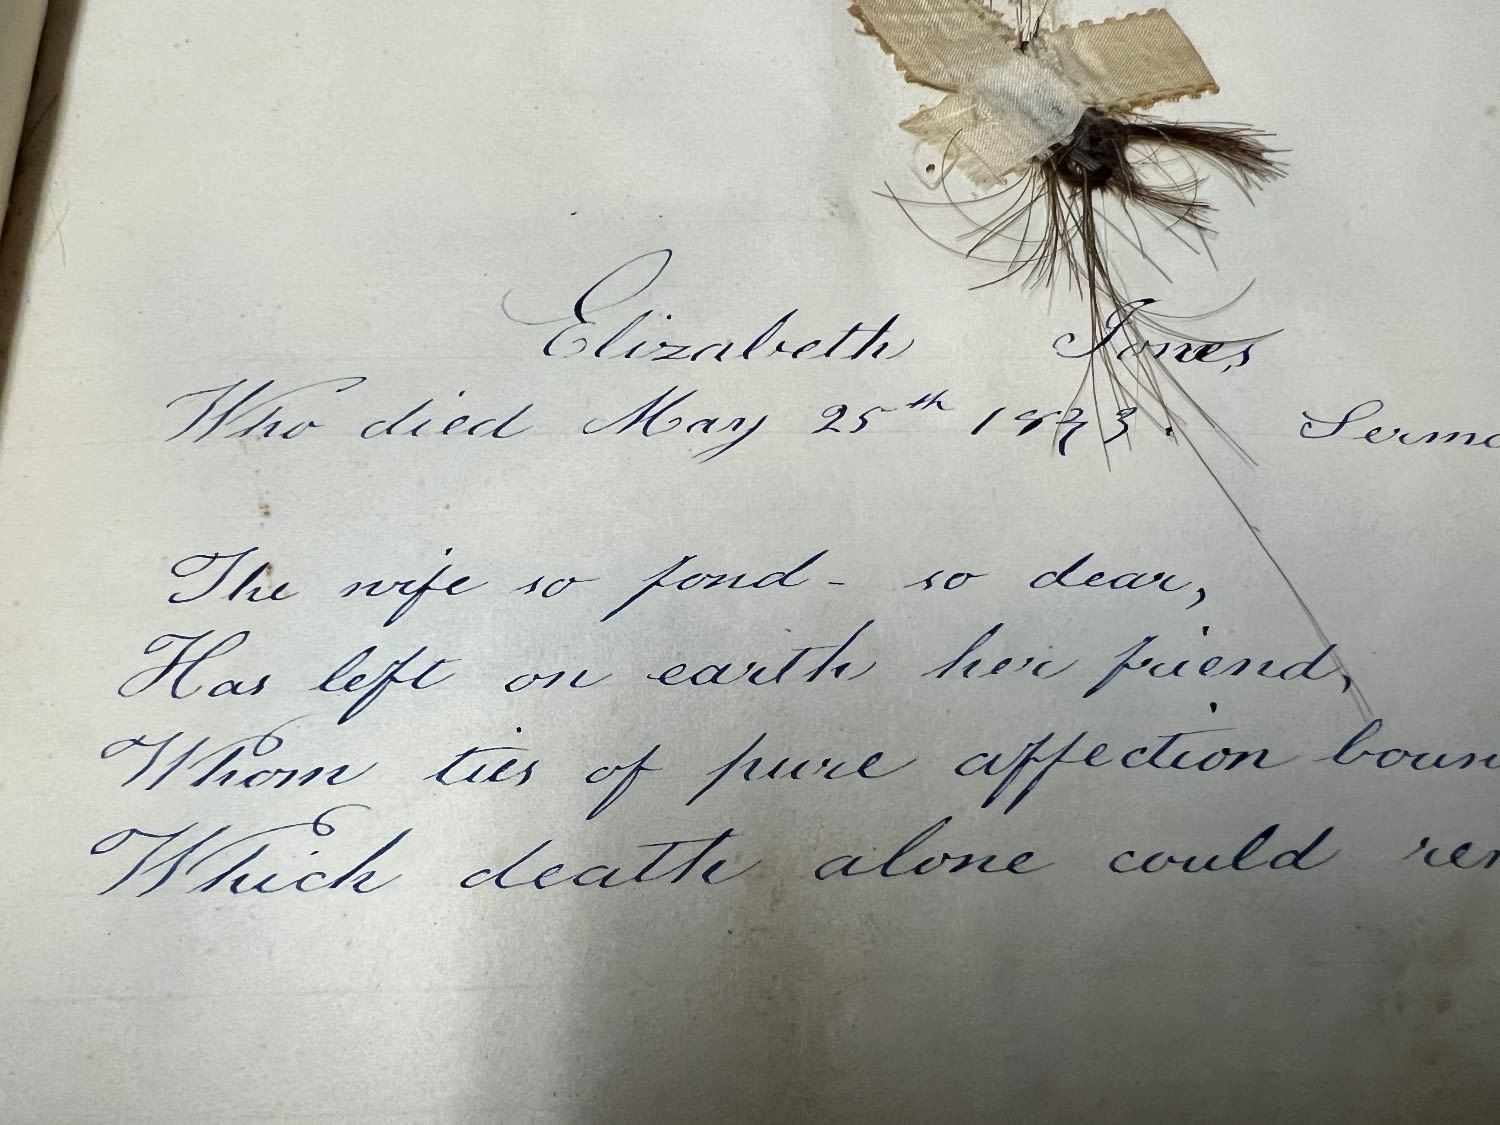 Elizabeth Jones
Who died May 25th 1873. Sermo
The wife so fond - so dear,
Has left on earth her friend,
Whom ties of pure affection boun
Which death alone could